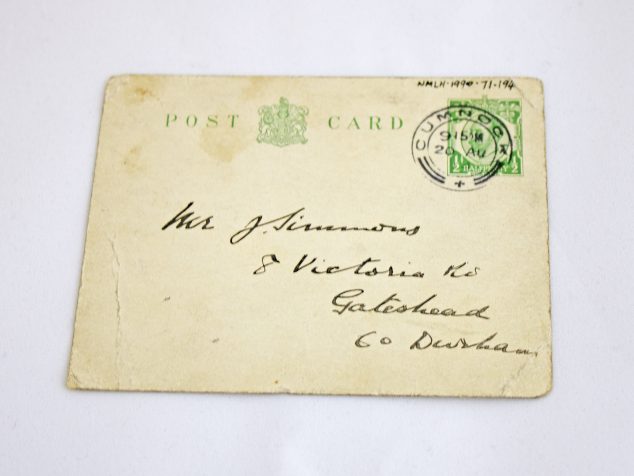 NMLH·1990·71·194
POST CARD
CUMNOCK
9 15
20 AU
½ HALFPENNY ½
Mr J. Simmons
8 Victoria Rd
Gateshead
Co Durham